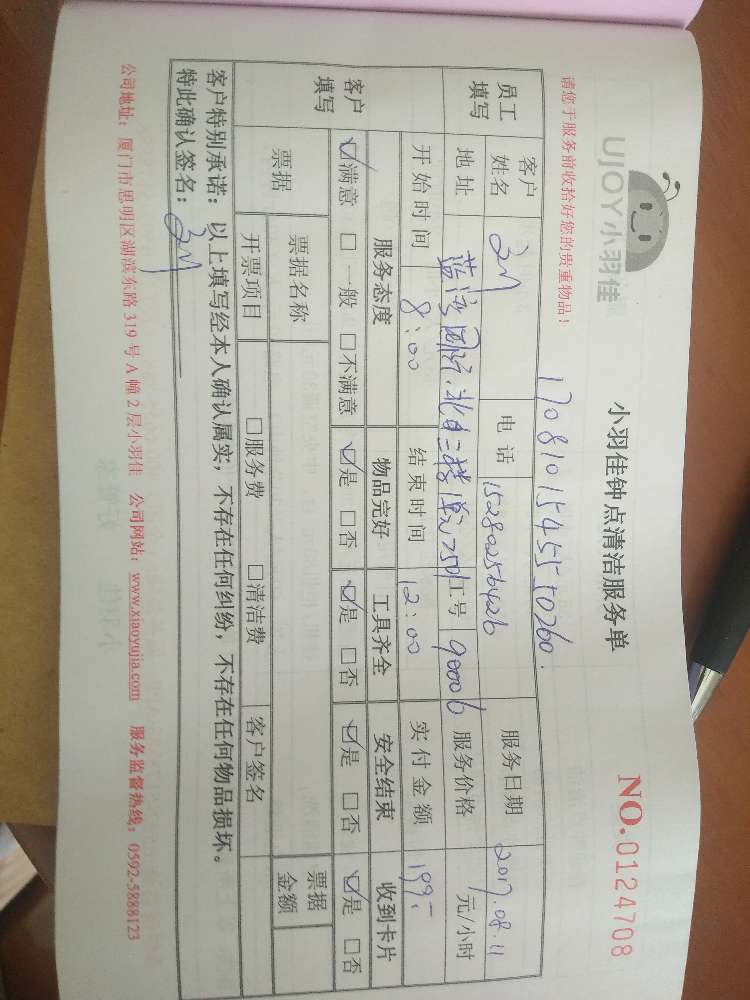 UJOY小羽佳
小羽佳钟点清洁服务单
NO.0124708
请您于服务前收拾好您的贵重物品！
1708101545550260.
员工填写 客户姓名 电话 15280256426 服务日期 2017.08.11
地址 北 二楼 单元2501 工号 90006 服务价格 元/小时
开始时间 8:00 结束时间 12:00 实付金额 199-
客户填写 服务态度 物品完好 工具齐全 安全结束 收到卡片
☑满意 □一般 □不满意 ☑是 □否 ☑是 □否 ☑是 □否 ☑是 □否
票据 票据名称 票据金额
开票项目 □服务费 □清洁费 客户签名
客户特别承诺：以上填写经本人确认属实，不存在任何纠纷，不存在任何物品损坏。
特此确认签名：
公司地址：厦门市思明区湖滨东路319号A幢2层小羽佳 公司网站：www.xiaoyujia.com 服务监督热线：0592-5888123